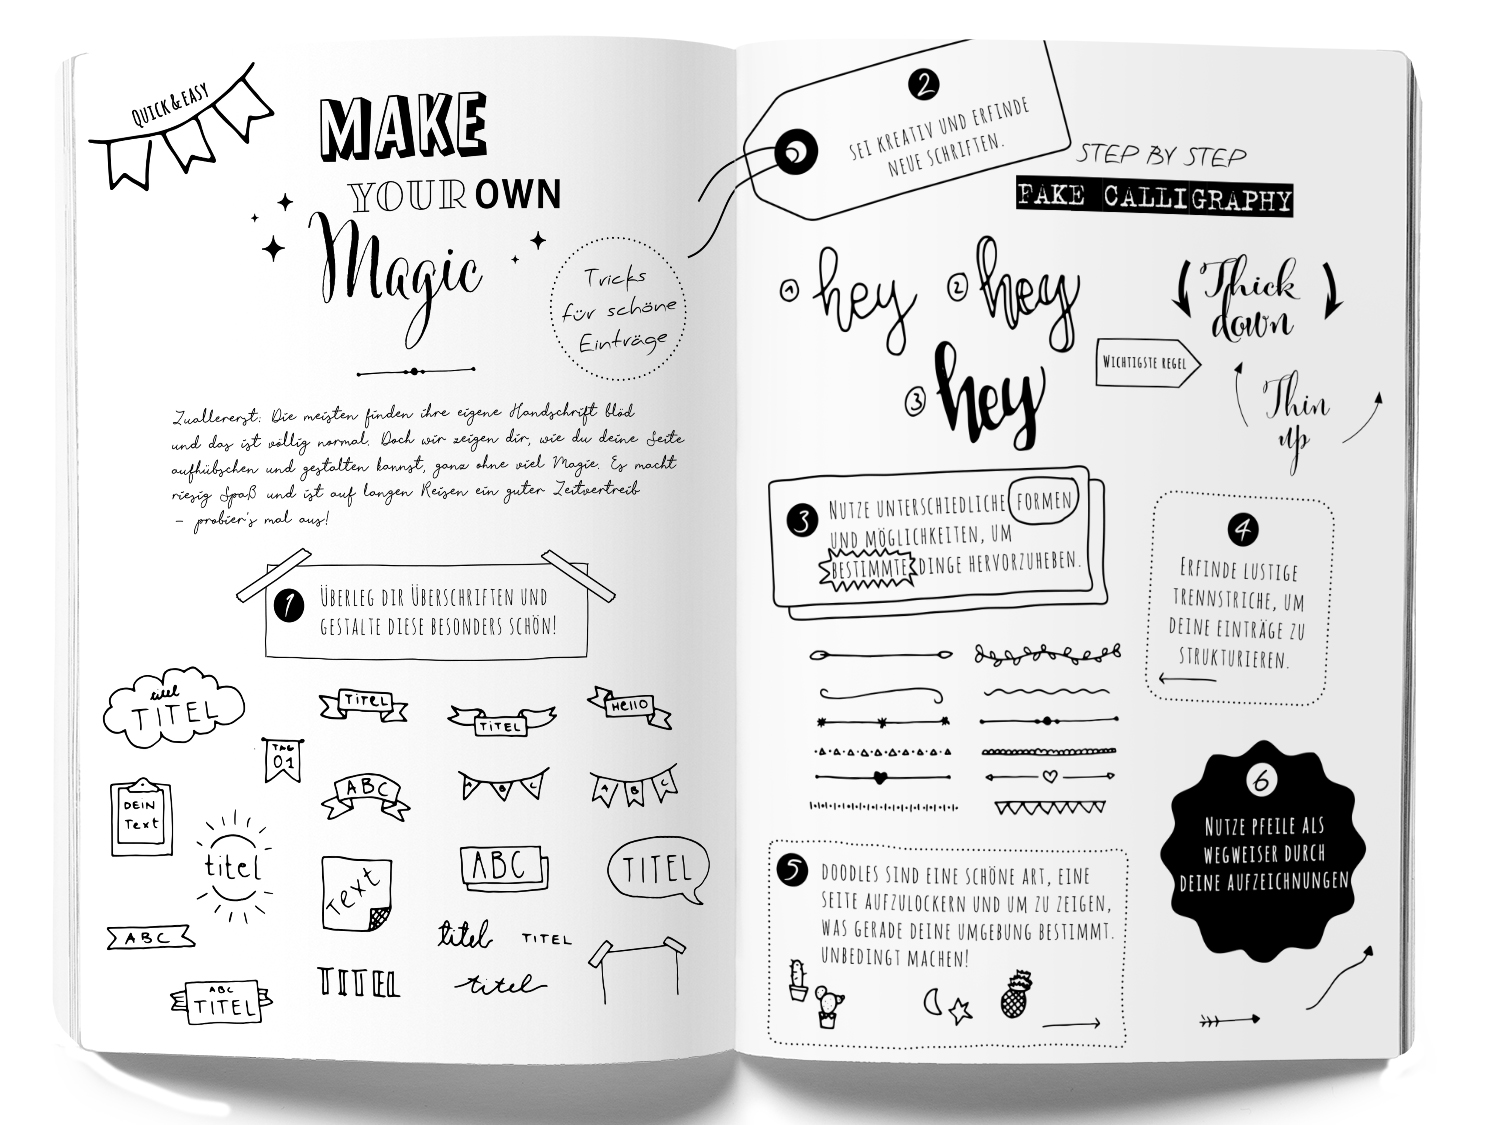 QUICK & EASY
MAKE
YOUR OWN
Magic
Tricks
für schöne
Einträge
Zuallererst: Die meisten finden ihre eigene Handschrift blöd
und das ist völlig normal. Doch wir zeigen dir, wie du deine Seite
aufhübschen und gestalten kannst, ganz ohne viel Magie. Es macht
riesig Spaß und ist auf langen Reisen ein guter Zeitvertreib
– probier's mal aus!
1
ÜBERLEG DIR ÜBERSCHRIFTEN UND
GESTALTE DIESE BESONDERS SCHÖN!
titel
TITEL
TAG
01
TITEL
TITEL
HELLO
DEIN
Text
titel
ABC
A B C
A B C
Text
ABC
TITEL
ABC
titel
TITEL
ABC
TITEL
TITEL
titel
2
SEI KREATIV UND ERFINDE
NEUE SCHRIFTEN.
STEP BY STEP
FAKE CALLIGRAPHY
1 hey
2 hey
3 hey
Thick
down
WICHTIGSTE REGEL
Thin
up
3
NUTZE UNTERSCHIEDLICHE FORMEN
UND MÖGLICHKEITEN, UM
BESTIMMTE DINGE HERVORZUHEBEN.
4
ERFINDE LUSTIGE
TRENNSTRICHE, UM
DEINE EINTRÄGE ZU
STRUKTURIEREN.
5
DOODLES SIND EINE SCHÖNE ART, EINE
SEITE AUFZULOCKERN UND UM ZU ZEIGEN,
WAS GERADE DEINE UMGEBUNG BESTIMMT.
UNBEDINGT MACHEN!
6
NUTZE PFEILE ALS
WEGWEISER DURCH
DEINE AUFZEICHNUNGEN